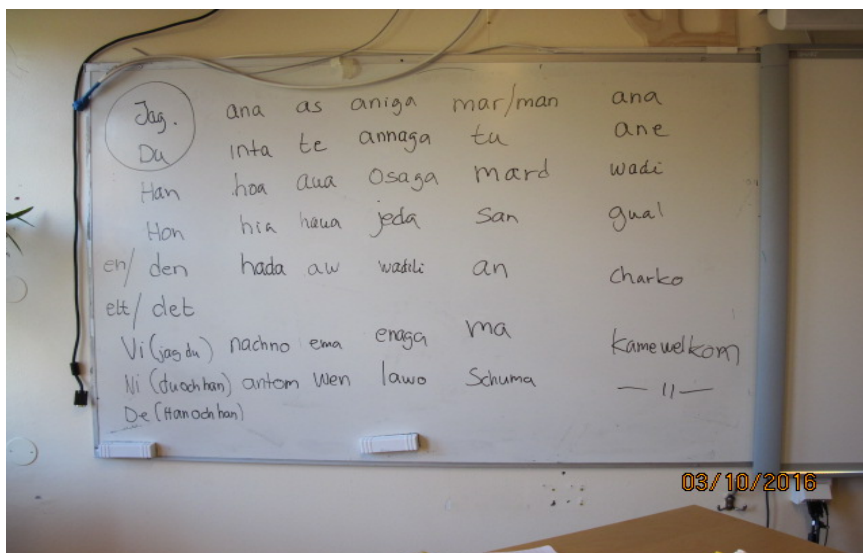 Jag. ana as aniga mar/man ana
Du inta te annaga tu ane
Han hoa aua osaga mard wadi
Hon hia haua jeda san gual
en/ den hada aw wadili an charko
ett/ det
Vi (jag du) nachno ema enaga ma kamewelkom
Ni (du och han) antom wen lawo Schuma — 11 —
De (Han och han)
03/10/2016